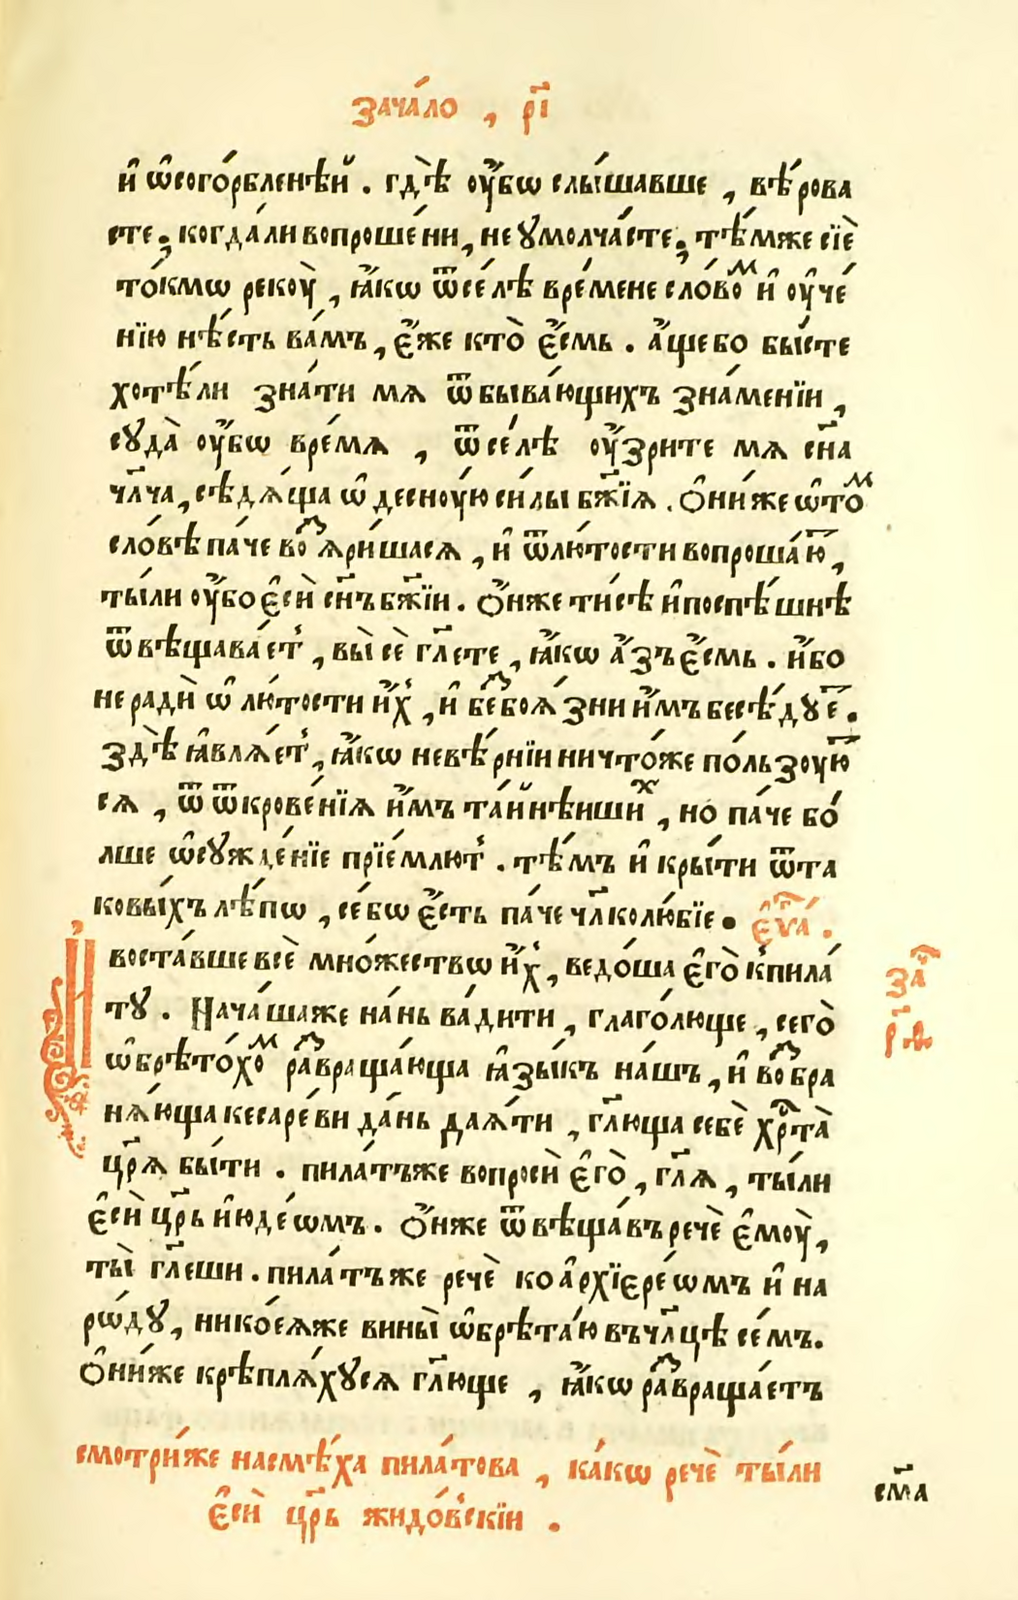 зача́ло , р҃і
и҆ ѡ҆согорбле́нѣй . гдѣ̀ ᲂу҆̀бѡ слы́шавше , вѣ́рова
сте; когда́ли вопроше́ни, не ꙋмолча́сте; тѣ́мже сїѐ
то́кмѡ рекꙋ̀ , ꙗ҆́кѡ ѿсе́лѣ вре́мене сло́воⷨ и҆ ᲂу҆че́
нїю нѣ́сть ва́мъ, є҆́же кто̀ є҆́смь . а҆́ще бо бы́сте
хотѣ́ли зна́ти мѧ ѿ быва́ющихъ зна́менїи ,
сꙋда̀ ᲂу҆́бѡ вре́мѧ , ѿсе́лѣ ᲂу҆́зрите мѧ сн҃а
чл҃ча, сѣдѧ́ща ѡ҆ деснꙋ́ю си́лы бж҃їѧ . Ѻ҆ни́же ѡ҆ тоⷨ
сло́вѣ па́че воⷥѧри́шасѧ , и҆ ѿ лю́тости вопроша́ю҆ⷮ ,
ты́ли ᲂу҆́бо є҆сѝ сн҃ъ бж҃їи . Ѻ҆́нже ти́сѣ и҆ поспѣ́шнѣ
ѿвѣщава́етⸯ , вы̀ сѐ гл҃ете , ꙗ҆́кѡ а҆́зъ є҆́смь . и҆́бо
не радѝ ѡ҆ лю́тости и҆́хⸯ , и҆ беⷥбоѧ́зни и҆́мъ бесѣ́дꙋеⷮ .
здѣ̀ ꙗ҆влѧ́етⸯ , ꙗ҆́кѡ невѣ́рнїи ничто́же по́льзꙋюⷮ
сѧ , ѿ ѿкрове́нїѧ и҆́мъ та́йнѣишиⷯ , но́ па́че бо́
лше ѡ҆сꙋжде́нїе прїе́млютⸯ . тѣ́мъ и҆ кры́ти ѿ та
ковы́хъ лѣ́пѡ , се́ бѡ є҆́сть па́че чл҃колю́бїе . є҆ѵⷢ҇а́ .
И҆
воста́вше всѐ мно́жествѡ и҆́хⸯ , ведо́ша є҆го̀ кⸯпила́
тꙋ . Нача́шаже на́нь ва́дити , глаго́люще , сего̀
ѡ҆брѣто́хоⷨ раⷥвраща́юща ꙗ҆зы́къ на́шъ , и҆ воⷥбра
нѧ́юща кесаре́ви да́нь даѧ́ти , гл҃юща себѐ хрⷭ҇та̀
цр҃ѧ бы́ти . пила́тъже вопросѝ є҆го̀ , гл҃ѧ , ты́ли
є҆сѝ цр҃ь и҆юде́ѡмъ . Ѻ҆́нже ѿвѣща́въ речѐ є҆мꙋ̀,
ты̀ гл҃еши . пила́тъже речѐ ко а҆рхїере́ѡмъ и҆ на
ро́дꙋ , никое́ѧже вины̀ ѡ҆брѣта́ю въ чл҃цѣ се́мъ.
Ѻ҆ни́же крѣплѧ́хꙋсѧ гл҃юще , ꙗ҆́кѡ раⷥвраща́етъ
за҆ⷱ
р҃ ѳ҃
смотри́же насмѣ́ха пила́това , ка́кѡ речѐ ты́ли
є҆сѝ цр҃ь жидо́вⸯскїи .
см҃а